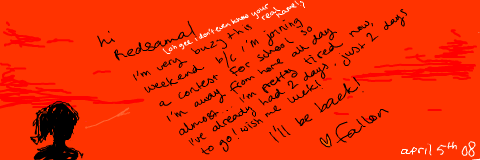 hi
Redsama!
(oh gee i don't even know your
real name!)
i'm very busy this
weekend b/c i'm joining
a contest for school so
i'm away from home all day
almost... i'm pretty tired now,
i've already had 2 days, just 2 days
to go! wish me luck!
I'll be back!
♡ Fallon
april 5th 08